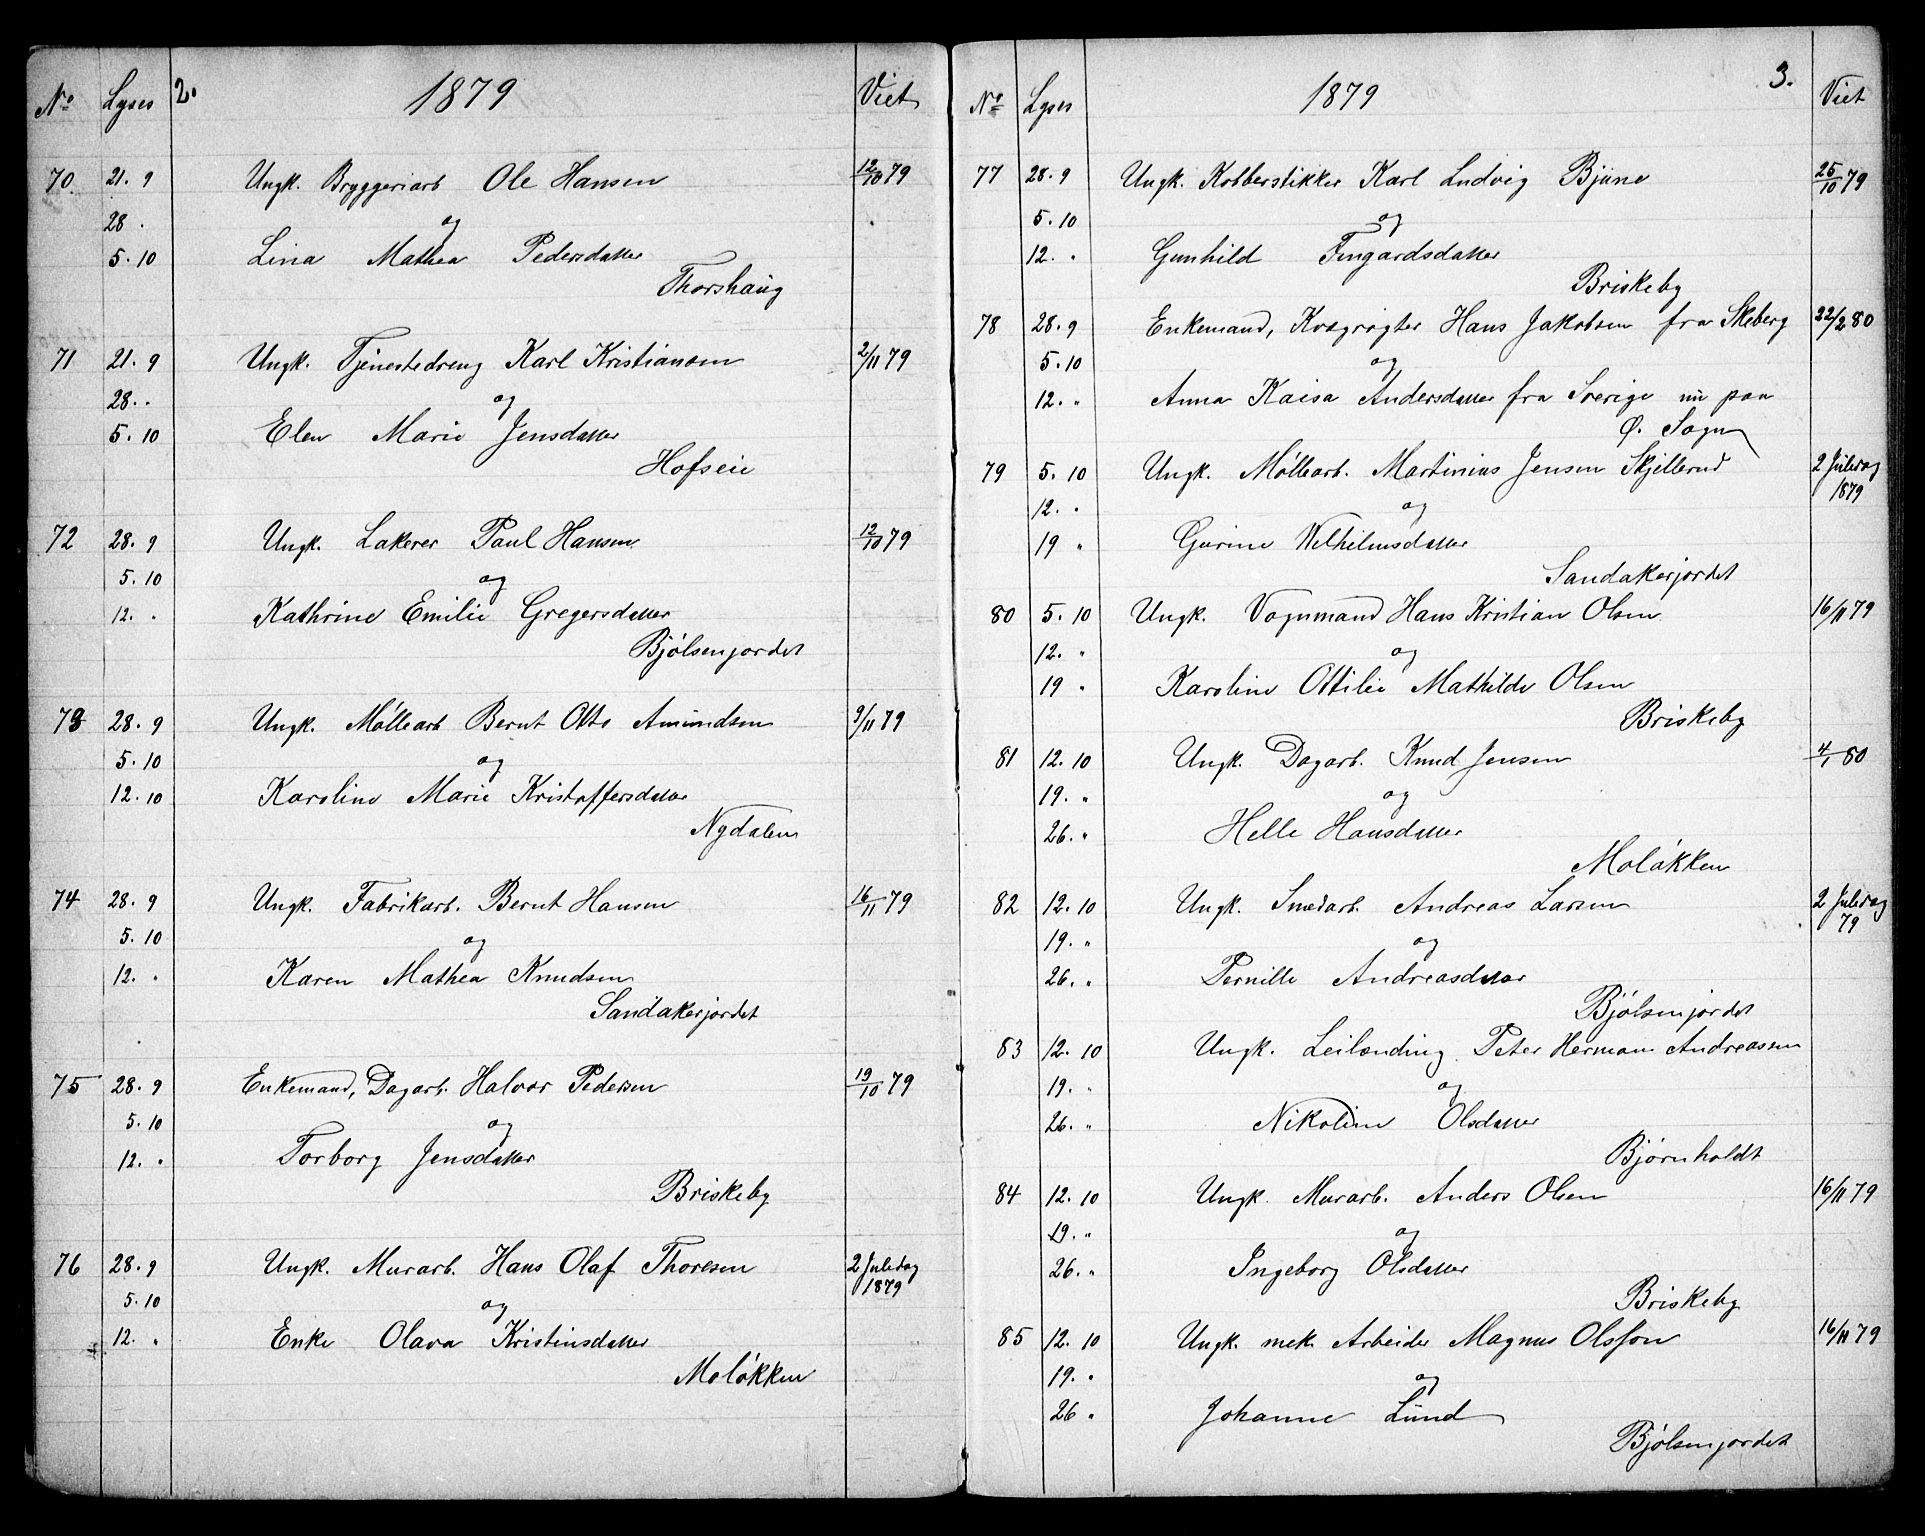 2.
No Lyses 1879 Viet
70 21. 9 Ungk. Bryggeriarb Ole Hansen 12/10 79
28 . og
5. 10 Lina Mathea Pedersdatter
Thorshaug
71 21. 9 Ungk. Tjenestedreng Karl Kristiansen 2/11 79
28. . og
5. 10 Elen Marie Jensdatter
Hofseie
72 28. 9 Ungk. Lakerer Paul Hansen 12/10 79
5. 10 og
12. . Kathrine Emilie Gregersdatter
Bjølsenjordet
73 28. 9 Ungk. Møllearb Bernt Otto Amundsen 9/11 79
5. 10 og
12. 10 Karoline Marie Kristoffersdatter
Nydalen
74 28. 9 Ungk. Fabrikarb. Bernt Hansen 16/11 79
5. 10 og
12. . Karen Mathea Knudsen
Sandakerjordet
75 28. 9 Enkemand, Dagarb. Halvor Pedersen 19/10 79
5. 10 og
12. . Torborg Jensdatter
Briskeby
76 28. 9 Ungk. Murarb. Hans Olaf Thoresen 2 Juledag 1879
5. 10 og
12. " Enke Olava Kristinsdatter
Moløkken
3.
No Lyses 1879 Viet
77 28. 9 Ungk. Kobberstikker Karl Ludvig Bjune 25/10 79
5. 10 og
12. " Gunhild Fingardsdatter
Briskeby
78 28. 9 Enkemand, Kvægrøgter Hans Jakobsen fra Skeberg 22/2 80
5. 10 og
12. " Anna Kaisa Andersdatter fra Sverige nu paa
Ø. Sogn
79 5. 10 Ungk. Møllearb. Martinius Jensen Skjellerud 2 Juledag 1879
12. . og
19 " Gurine Welhelmsdatter
Sandakerjordet
80 5. 10 Ungk. Vognmand Hans Kristian Olsen 16/11 79
12. " og
19 " Karoline Ottilie Mathilde Olsen
Briskeby
81 12. 10 Ungk. Dagarb. Knud Jensen 4/1 80
19. " og
26. " Helle Hansdatter
Moløkken
82 12. 10 Ungk. Smedarb. Andreas Larsen 2 Juledag 79
19. " og
26. " Pernille Andreasdatter
Bjølsenjordet
83 12. 10 Ungk. Leilænding Peter Herman Andreassen
19. " og
26. " Nikoline Olsdatter
Bjørnholdt
84 12. 10 Ungk. Murarb. Anders Olsen 16/11 79
19. " og
26. " Ingeborg Olsdatter
Briskeby
85 12. 10 Ungk. mek. Arbeider Magnus Olsson 16/11 79
19. " og
26 " Johanne Lund
Bjølsenjordet